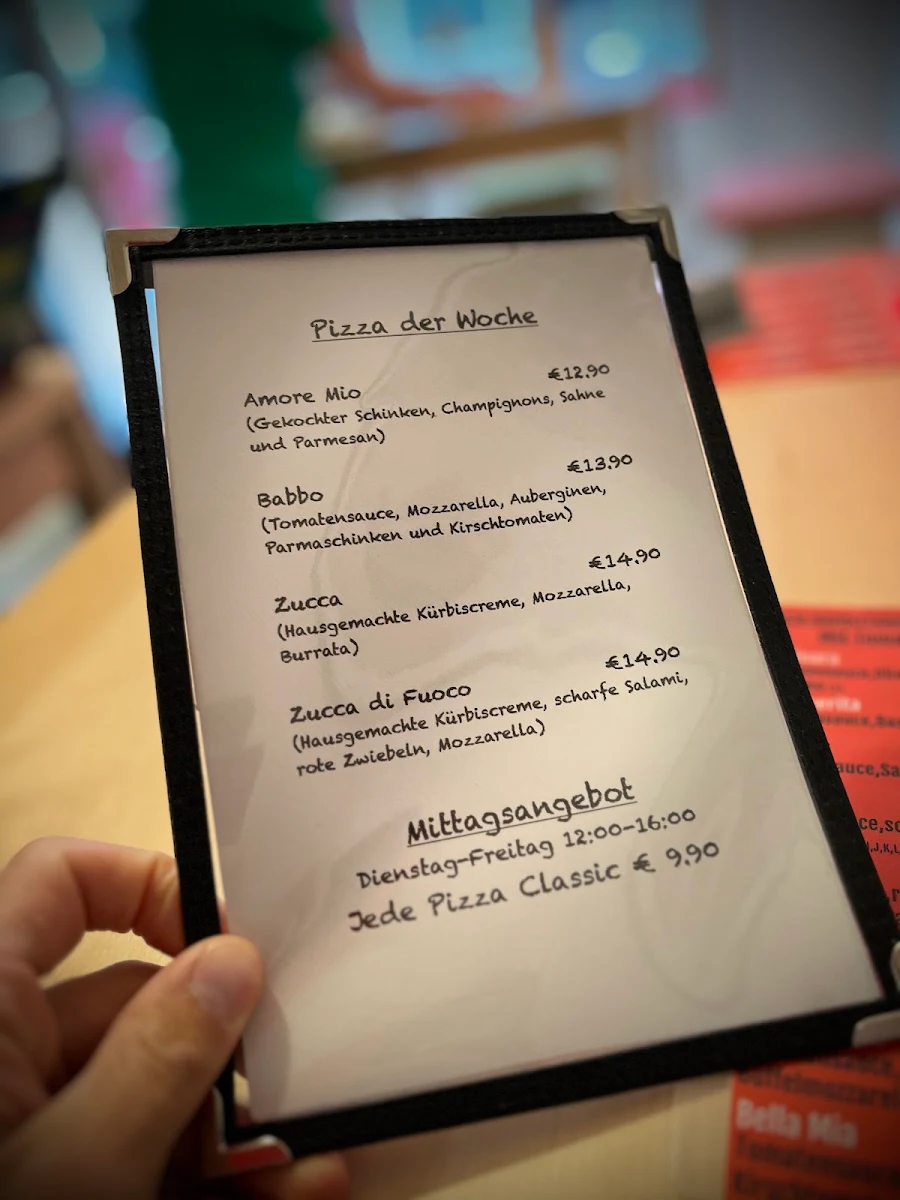 Pizza der Woche
Amore Mio €12.90
(Gekochter Schinken, Champignons, Sahne
und Parmesan)
Babbo €13.90
(Tomatensauce, Mozzarella, Auberginen,
Parmaschinken und Kirschtomaten)
Zucca €14.90
(Hausgemachte Kürbiscreme, Mozzarella,
Burrata)
Zucca di Fuoco €14.90
(Hausgemachte Kürbiscreme, scharfe Salami,
rote Zwiebeln, Mozzarella)
Mittagsangebot
Dienstag-Freitag 12:00-16:00
Jede Pizza Classic € 9.90
Bella Mia